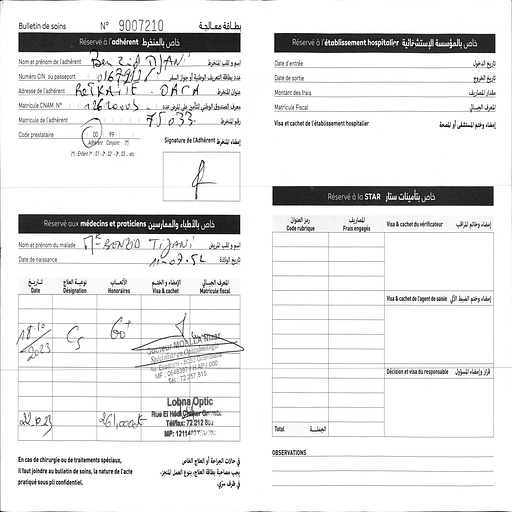 Bulletin de soins N° 9007210 بطاقة معالجة
Réservé à l'adhérent خاص بالمنخرط
Nom et prénom de l'adhérent Benzid Tijani إسم و لقب المنخرط
Numéro CIN ou passeport عدد بطاقة التعريف الوطنية أو جواز السفر
Adresse de l'adhérent RETRAITE عنوان المنخرط
Matricule CNAM N° معرف الصندوق الوطني للتأمين على المرض عدد
Matricule de l'adhérent 75033 رقم المنخرط
Code prestataire 00 99
Adhérent Conjoint (*)
(*) : Enfant 1er : 01 - 2e : 02 - 3e : 03 ... etc
Signature de l'Adhérent إمضاء المنخرط
Réservé aux médecins et praticiens خاص بالأطباء والممارسين
Nom et prénom du malade Mr BENZID TIJANI إسم و لقب المريض
Date de naissance 11-07-52 تاريخ الولادة
تاريخ نوعية العلاج الأتعاب الإمضاء و الختم المعرف الجبائي
Date Désignation Honoraires Visa & cachet Matricule fiscal
18-10 2023 Cs 60
Docteur
Spécialiste en Ophtalmologie
Tél : 72.257.815
Lobna Optic
Rue El Hédi
Tél/fax: 72 212 802
22.10.23 261,000
En cas de chirurgie ou de traitements spéciaux,
il faut joindre au bulletin de soins, la nature de l'acte
pratiqué sous pli confidentiel.
في حالات الجراحة أو العلاج الخاص
يجب مصاحبة بطاقة العلاج، بنوع العمل المنجز،
في ظرف سري.
Réservé à l'établissement hospitalier خاص بالمؤسسة الإستشفائية
Date d'entrée تاريخ الدخول
Date de sortie تاريخ الخروج
Montant des frais مقدار المصاريف
Matricule Fiscal المعرف الجبائي
Visa et cachet de l'établissement hospitalier إمضاء وختم المستشفى أو المصحة
Réservé à la STAR خاص بتأمينات ستار
رمز العنوان المصاريف
Code rubrique Frais engagés
Visa & cachet du vérificateur إمضاء وخاتم المراقب
Visa & cachet de l'agent de saisie إمضاء وختم الضبط الآلي
Décision et visa du responsable قرار وإمضاء المسؤول
Total الجملة
OBSERVATIONS